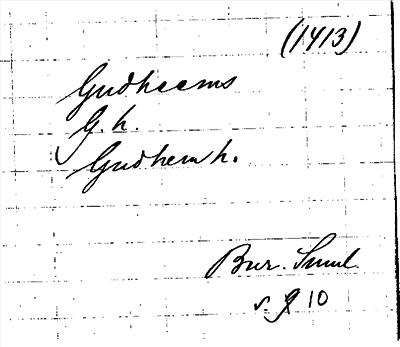 (1413)
Gudheems
G. h.
Gudhem h.
Bur. Smul.
s. 10